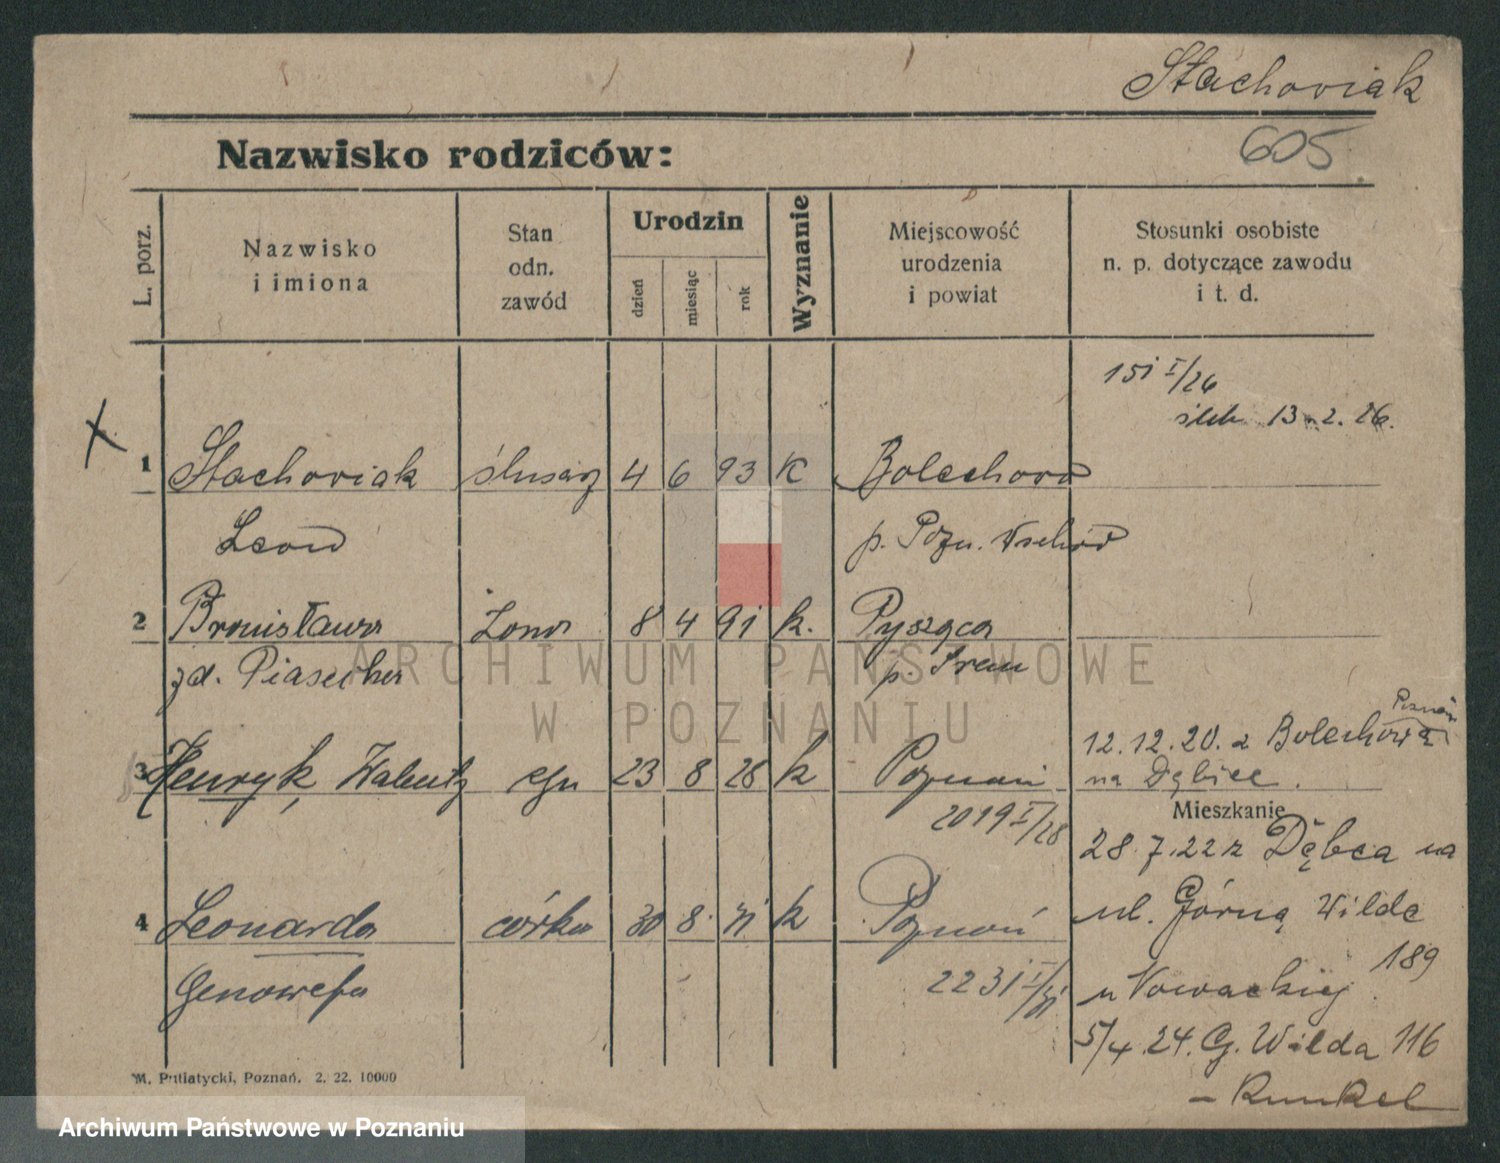 Stachoviak
605
Nazwisko rodziców:
L. porz.
Nazwisko
i imiona
Stan
odn.
zawód
Urodzin
dzień
miesiąc
rok
Wyznanie
Miejscowość
urodzenia
i powiat
Stosunki osobiste
n. p. dotyczące zawodu
i t. d.
151 I/26
ślub 13.2.26.
X
1 Stachoviak ślusarz 4 6 93 K Bolechowo
Leon p. Pozn. Wschód
2 Bronisława żona 8 4 91 k. Pysząca
zd. Piasecka p. Śrem
12.12.20. z Bolechowa Poznań
3 Henryk, Walenty syn 23 8 28 k Poznań na Dębiec.
2019 I/28
Mieszkanie
28.7.22 z Dębca na
4 Leonarda córka 30 8. 31 k Poznań ul. Górną Wildę
189
Genowefa 2231 I/31 u Nowackiej
5/4.24. G. Wilda 116
- Runkel
M. Putiatycki, Poznań. 2. 22. 10000
ARCHIWUM PAŃSTWOWE
W POZNANIU
Archiwum Państwowe w Poznaniu